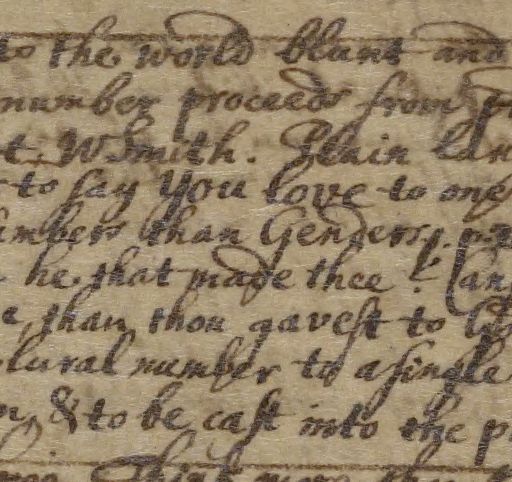 to the world blunt and
number proceeds from
t. W Smith. Plain lan
to say You love to one
umbers than Genders, p.
he that made thee? Can
e, than thou gavest to
plural number to a single
& to be cast into the p